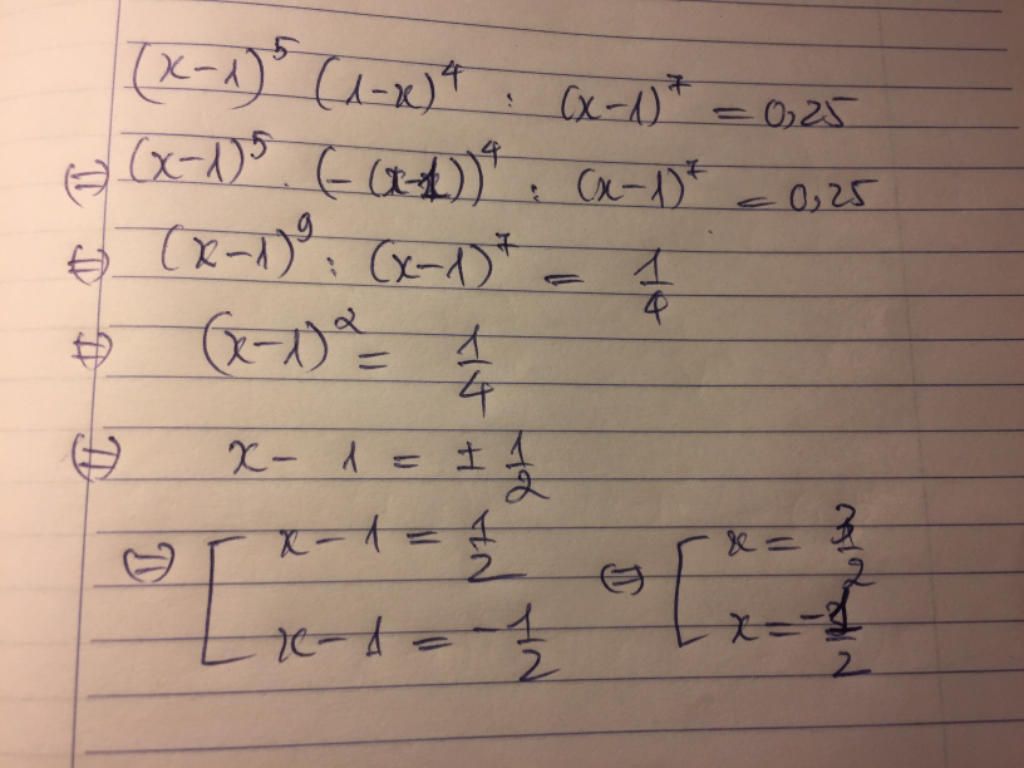 (x-1)^5 (1-x)^4 : (x-1)^7 = 0,25
(=) (x-1)^5 . (-(x-1))^4 : (x-1)^7 = 0,25
(=) (x-1)^9 : (x-1)^7 = 1/4
(=) (x-1)^2 = 1/4
(=) x - 1 = ± 1/2
(=) [ x - 1 = 1/2 (=) [ x = 3/2
x - 1 = -1/2 x =